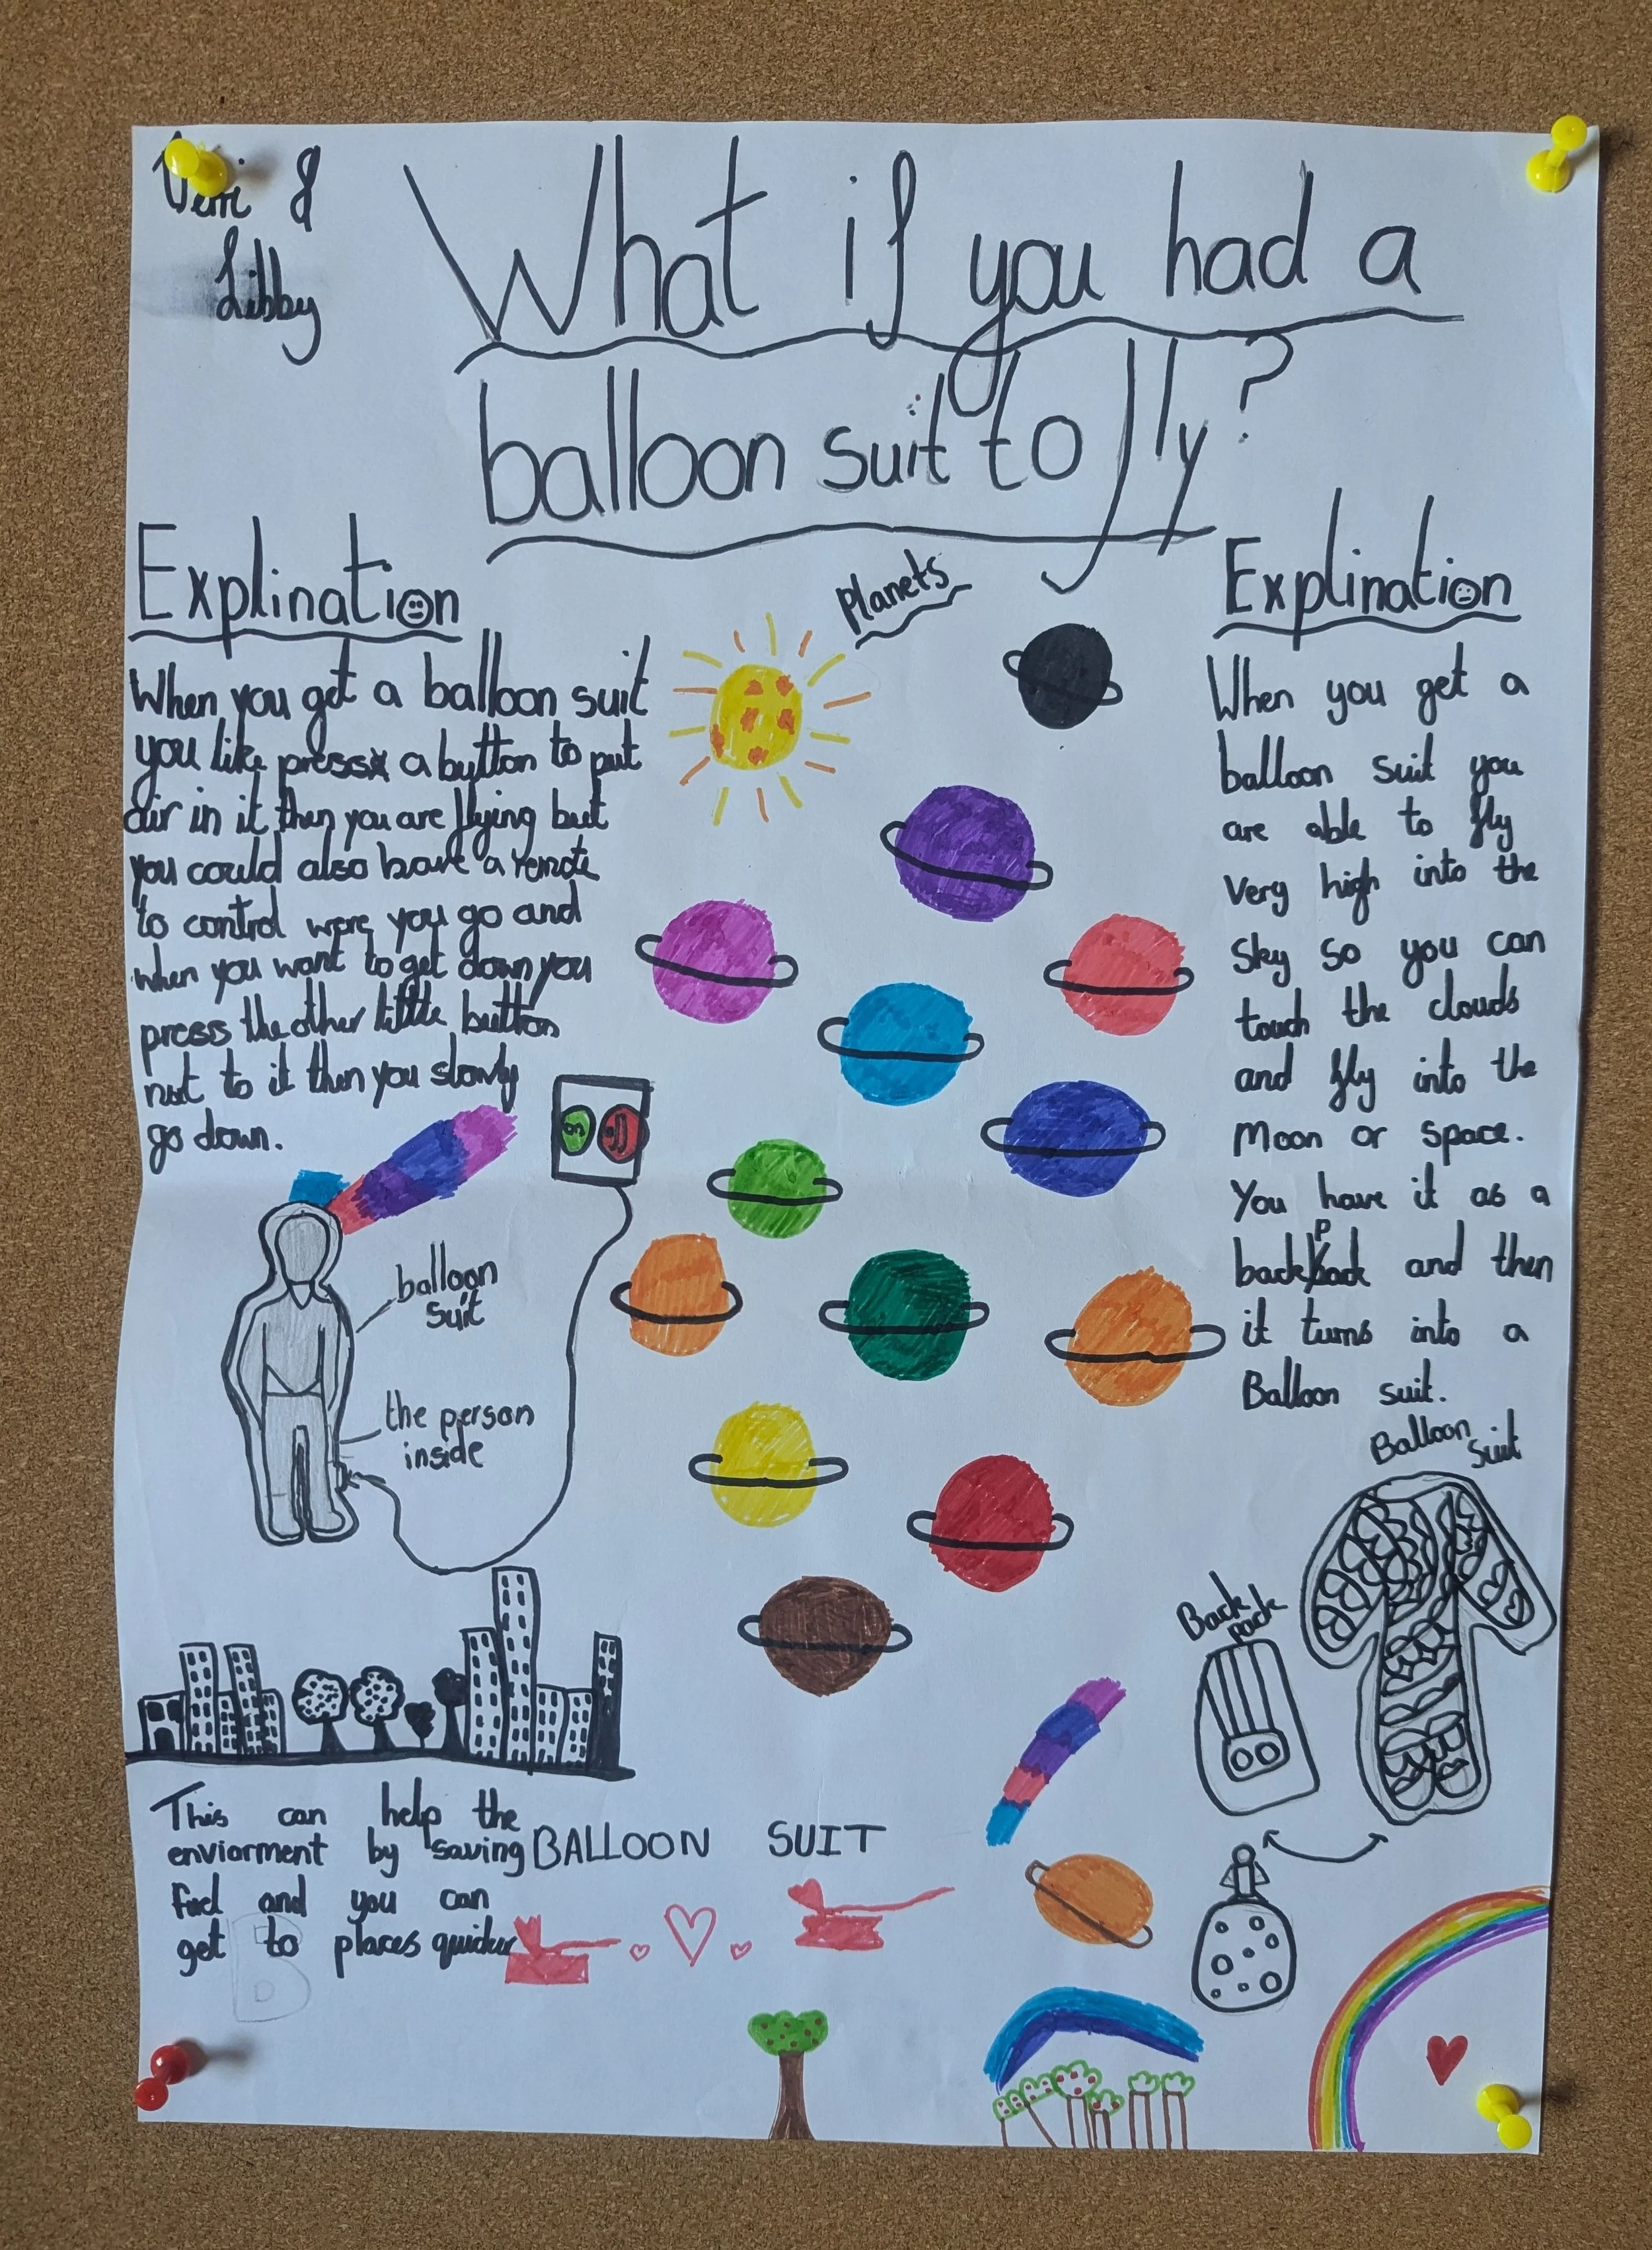 & 
Libby
What if you had a
balloon suit to fly?
Explination
When you get a balloon suit
you like press a button to put
air in it then you are flying but
you could also have a remote
to control were you go and
when you want to get down you
press the other little button
nxt to it then you slowly
go down.
on
off
balloon
suit
the person
inside
This can help the
enviorment by saving
fuel and you can
get to places quicker
BALLOON SUIT
B
Planets
Explination
When you get a
balloon suit you
are able to fly
very high into the
sky so you can
touch the clouds
and fly into the
Moon or space.
You have it as a
backpack and then
it turns into a
Balloon suit.
Balloon
suit
Back
pack